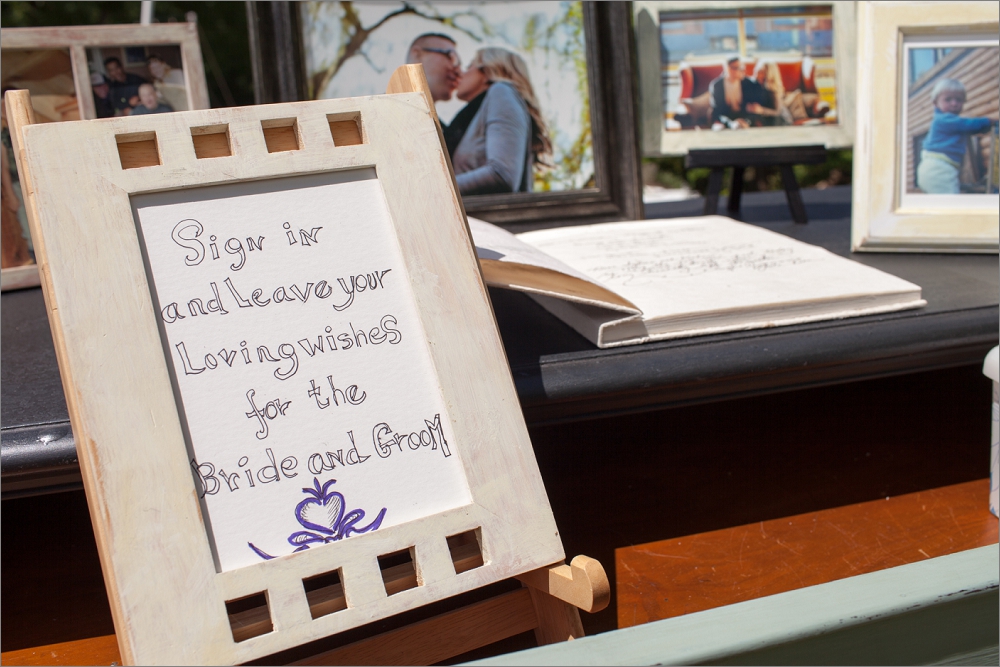 Sign in
and Leave your
Loving wishes
for the
Bride and GrooM